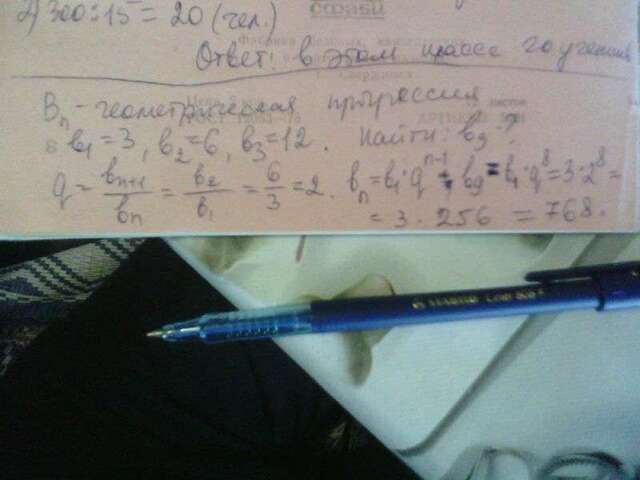 2) 300:15 = 20 (чел.)
Ответ: в этом классе 20 учеников
Bn - геометрическая прогрессия
b1 = 3, b2 = 6, b3 = 12. Найти: b9 - ?
q = bn+1/bn = b2/b1 = 6/3 = 2. bn = b1·q^n-1; b9 = b1·q^8 = 3·2^8 =
= 3·256 = 768.